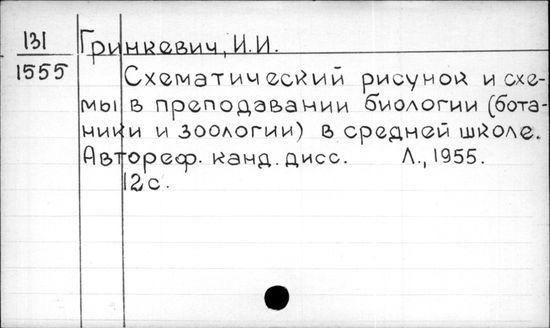 131
1555
Гринкевич, И.И.
Схематический рисунок и схе-
мы в преподавании биологии (бота-
ники и зоологии) в средней школе.
Автореф. канд. дисс. Л., 1955.
12 с.